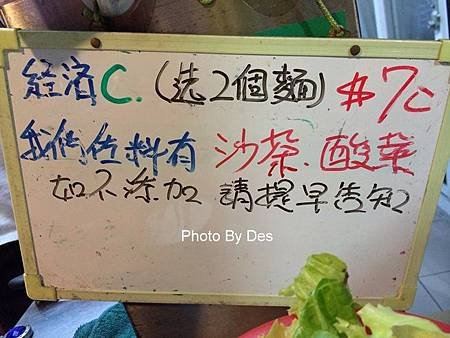 經濟C.(选2個麵)$70
我們佐料有 沙茶.酸菜
如不添加 請提早告知
Photo By Des